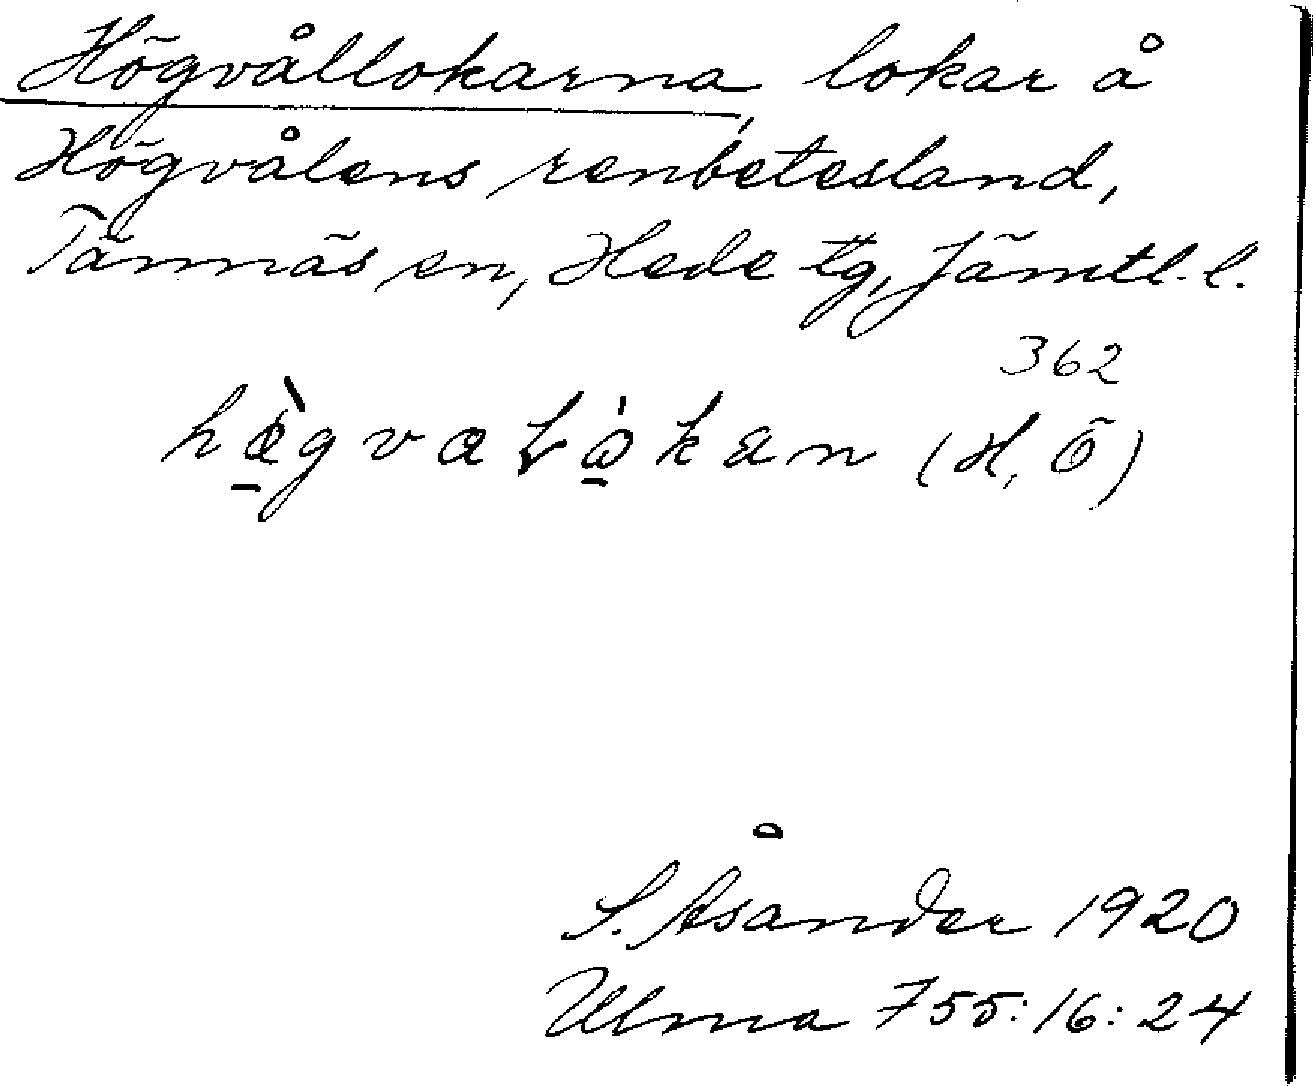 Högvållokarna, lokar å
Högvålens renbetesland,
Tännäs sn, Hede tg, Jämtl. l.
362
(H, Ö)
S. Åsander 1920
Ulma 755:16:24